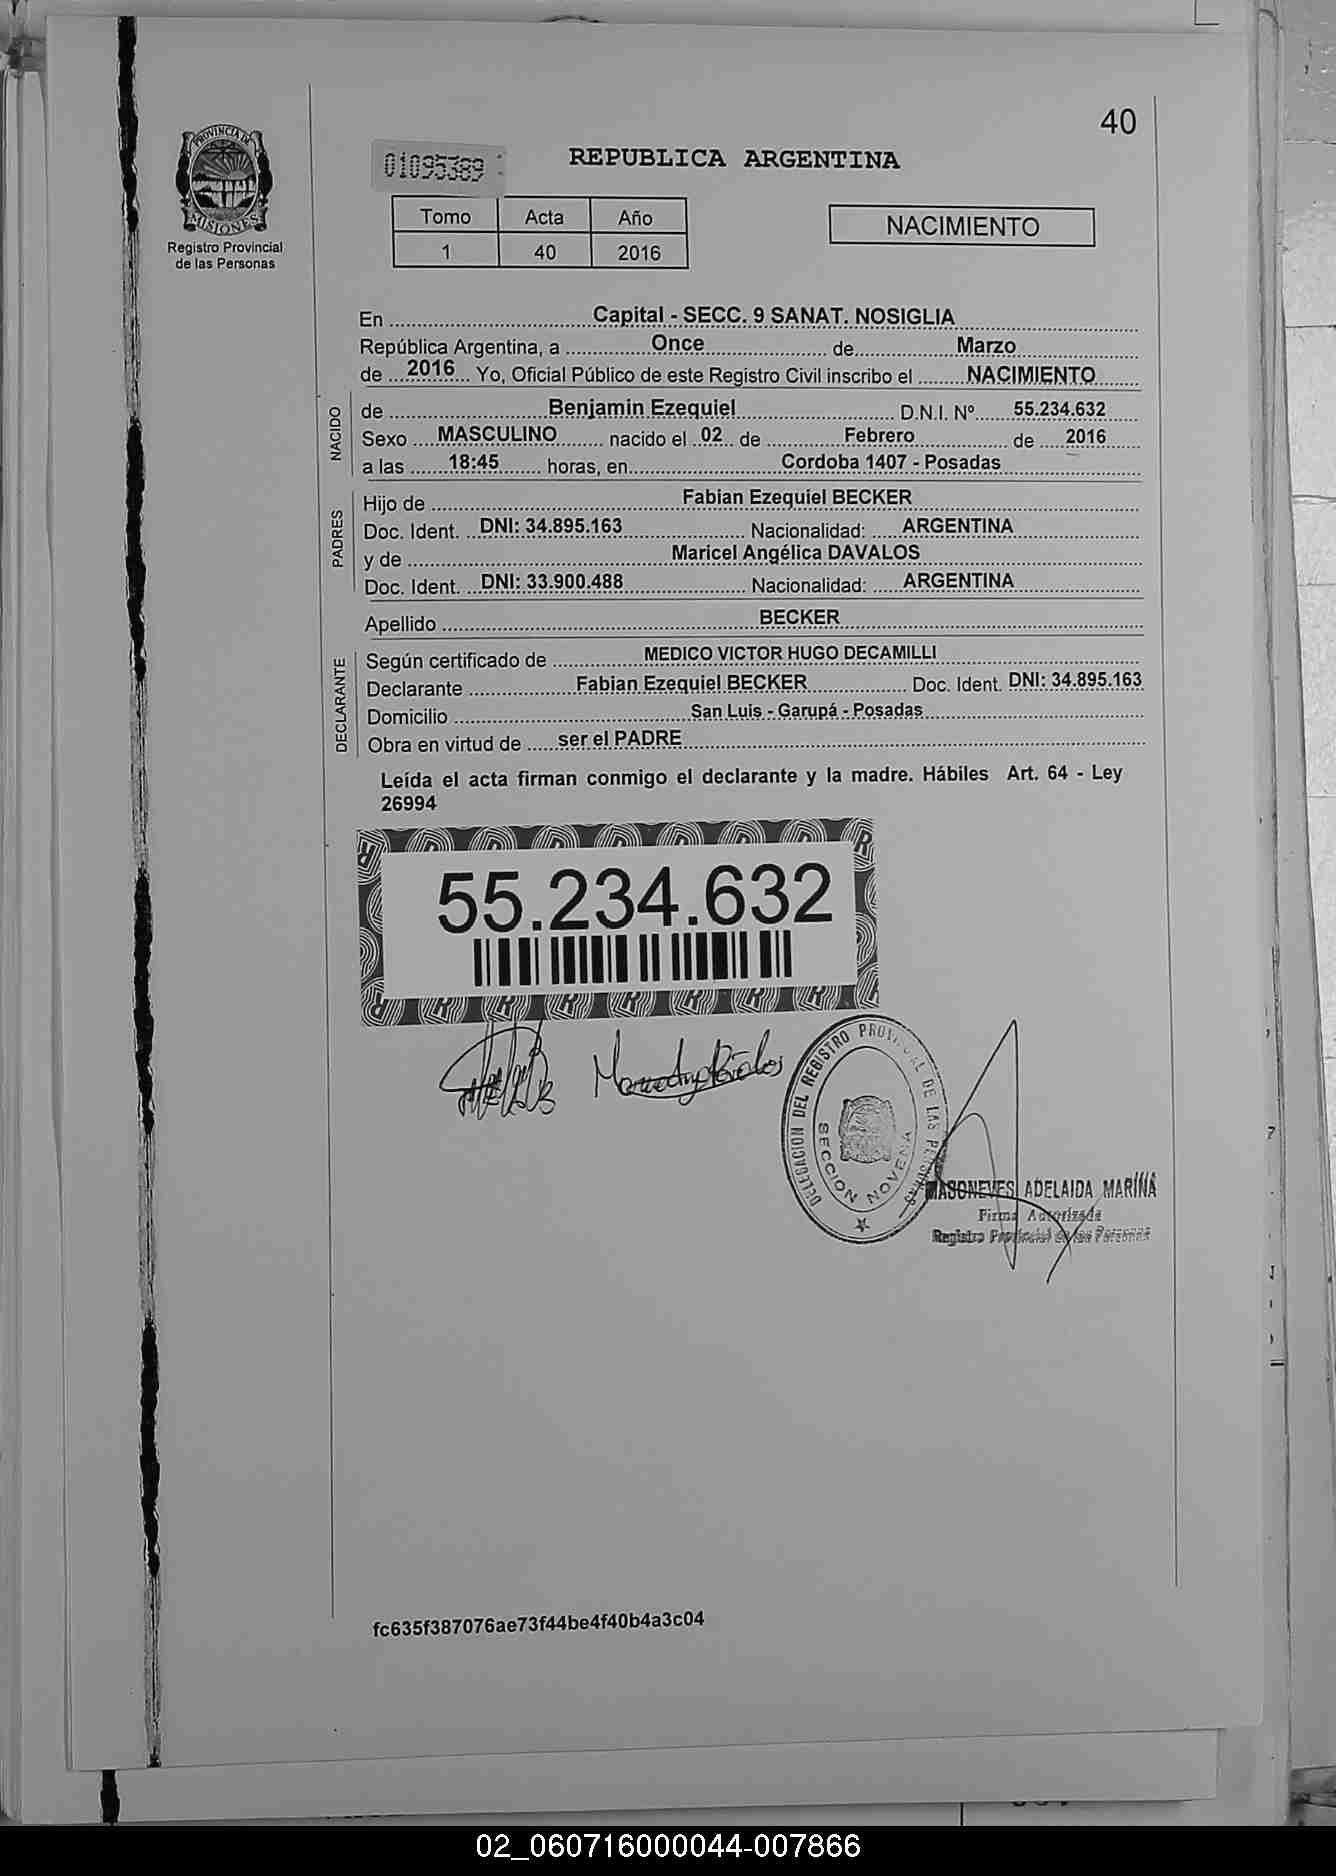 40
PROVINCIA DE
MISIONES
Registro Provincial
de las Personas
01095389
REPUBLICA ARGENTINA
Tomo Acta Año
1 40 2016
NACIMIENTO
En ........ Capital - SECC. 9 SANAT. NOSIGLIA
República Argentina, a ........ Once ........ de ........ Marzo
de .... 2016 .... Yo, Oficial Público de este Registro Civil inscribo el ........ NACIMIENTO
NACIDO
de ........ Benjamin Ezequiel ........ D.N.I. Nº ...... 55.234.632
Sexo .... MASCULINO ........ nacido el .. 02 ... de ........ Febrero ........ de .... 2016
a las ...... 18:45 ........ horas, en ........ Cordoba 1407 - Posadas
PADRES
Hijo de ........ Fabian Ezequiel BECKER
Doc. Ident. .. DNI: 34.895.163 ........ Nacionalidad: ..... ARGENTINA
y de ........ Maricel Angélica DAVALOS
Doc. Ident. .. DNI: 33.900.488 ........ Nacionalidad: .... ARGENTINA
Apellido ........ BECKER
DECLARANTE
Según certificado de ........ MEDICO VICTOR HUGO DECAMILLI
Declarante ........ Fabian Ezequiel BECKER ........ Doc. Ident. DNI: 34.895.163
Domicilio ........ San Luis - Garupá - Posadas
Obra en virtud de ..... ser el PADRE
Leída el acta firman conmigo el declarante y la madre. Hábiles Art. 64 - Ley
26994
55.234.632
DELEGACION DEL REGISTRO PROVINCIAL DE LAS PERSONAS
SECCION NOVENA
MASONEVES ADELAIDA MARINA
Firma Autorizada
Registro Provincial de las Personas
fc635f387076ae73f44be4f40b4a3c04
02_060716000044-007866